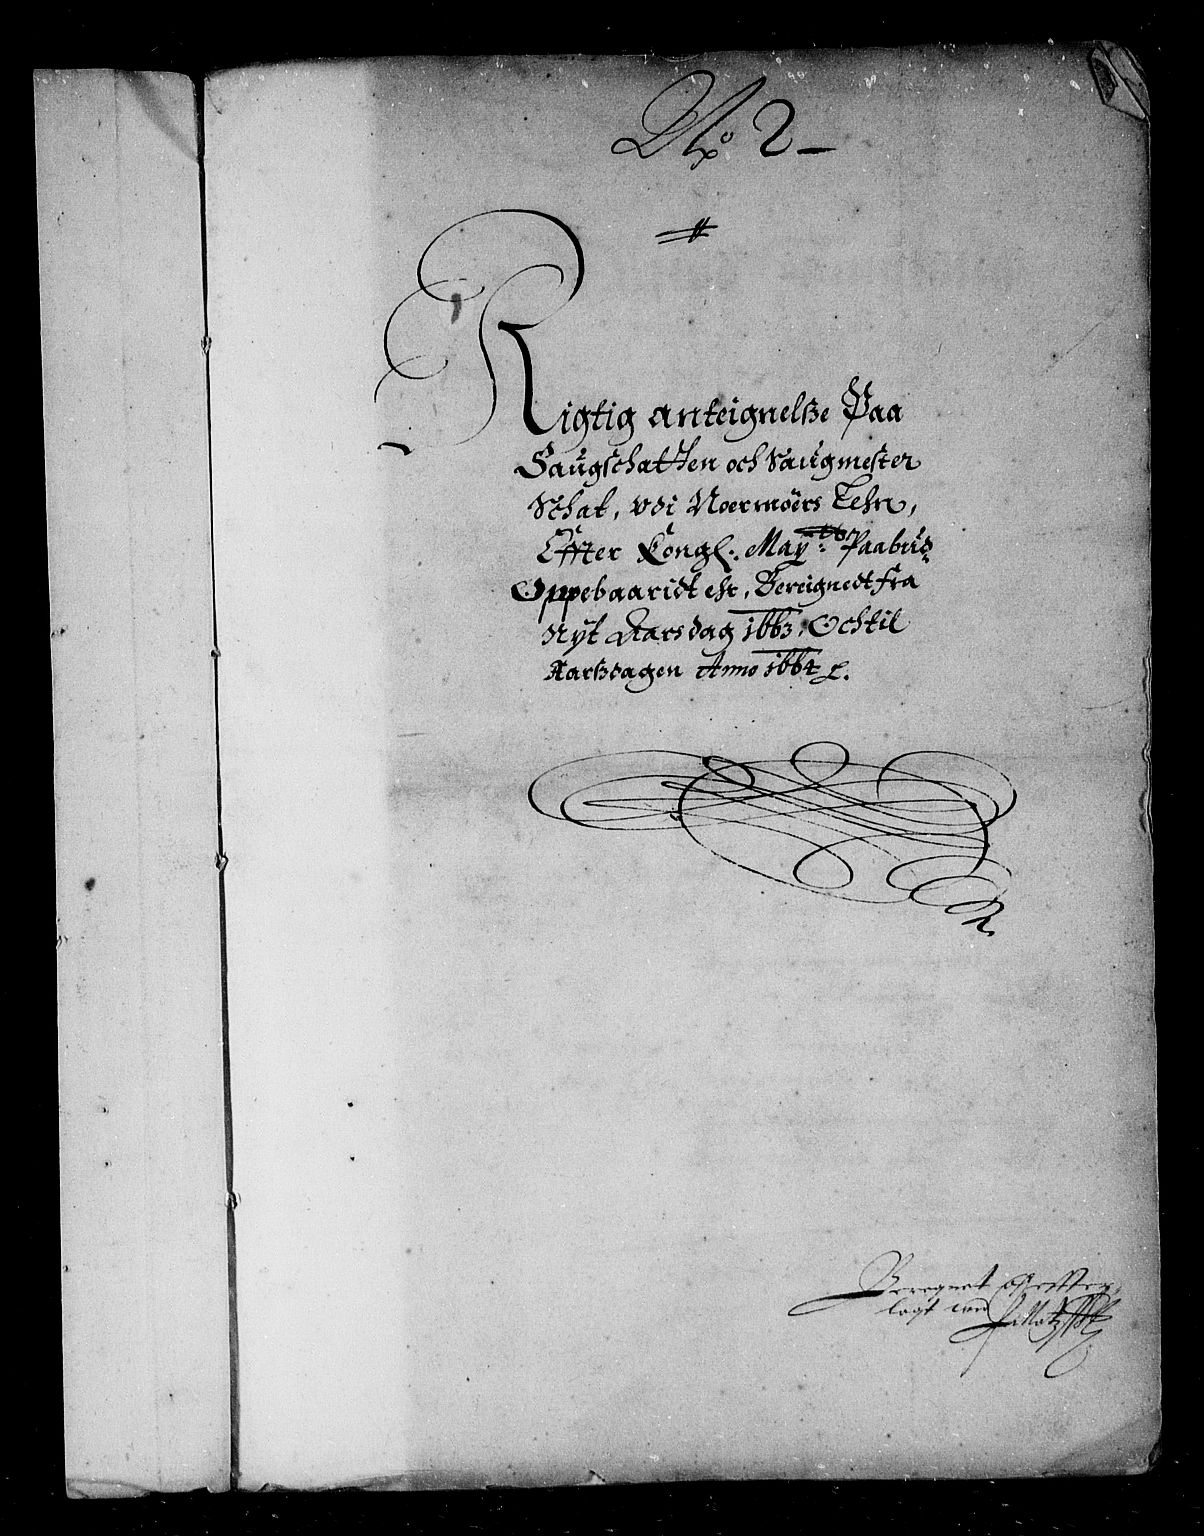 No 2
Rigtig anteignelsze Paa
Saugschatten och Saugmester
Schat, vdi Noermöers Lehn,
Effter Kongl: Maytz: Paabud
Oppebaaridt ehr, Bereignedt fra
Nyt Aarsdag 1663, Och til
Aarszdagen Anno 1664
Beregnet
lagt